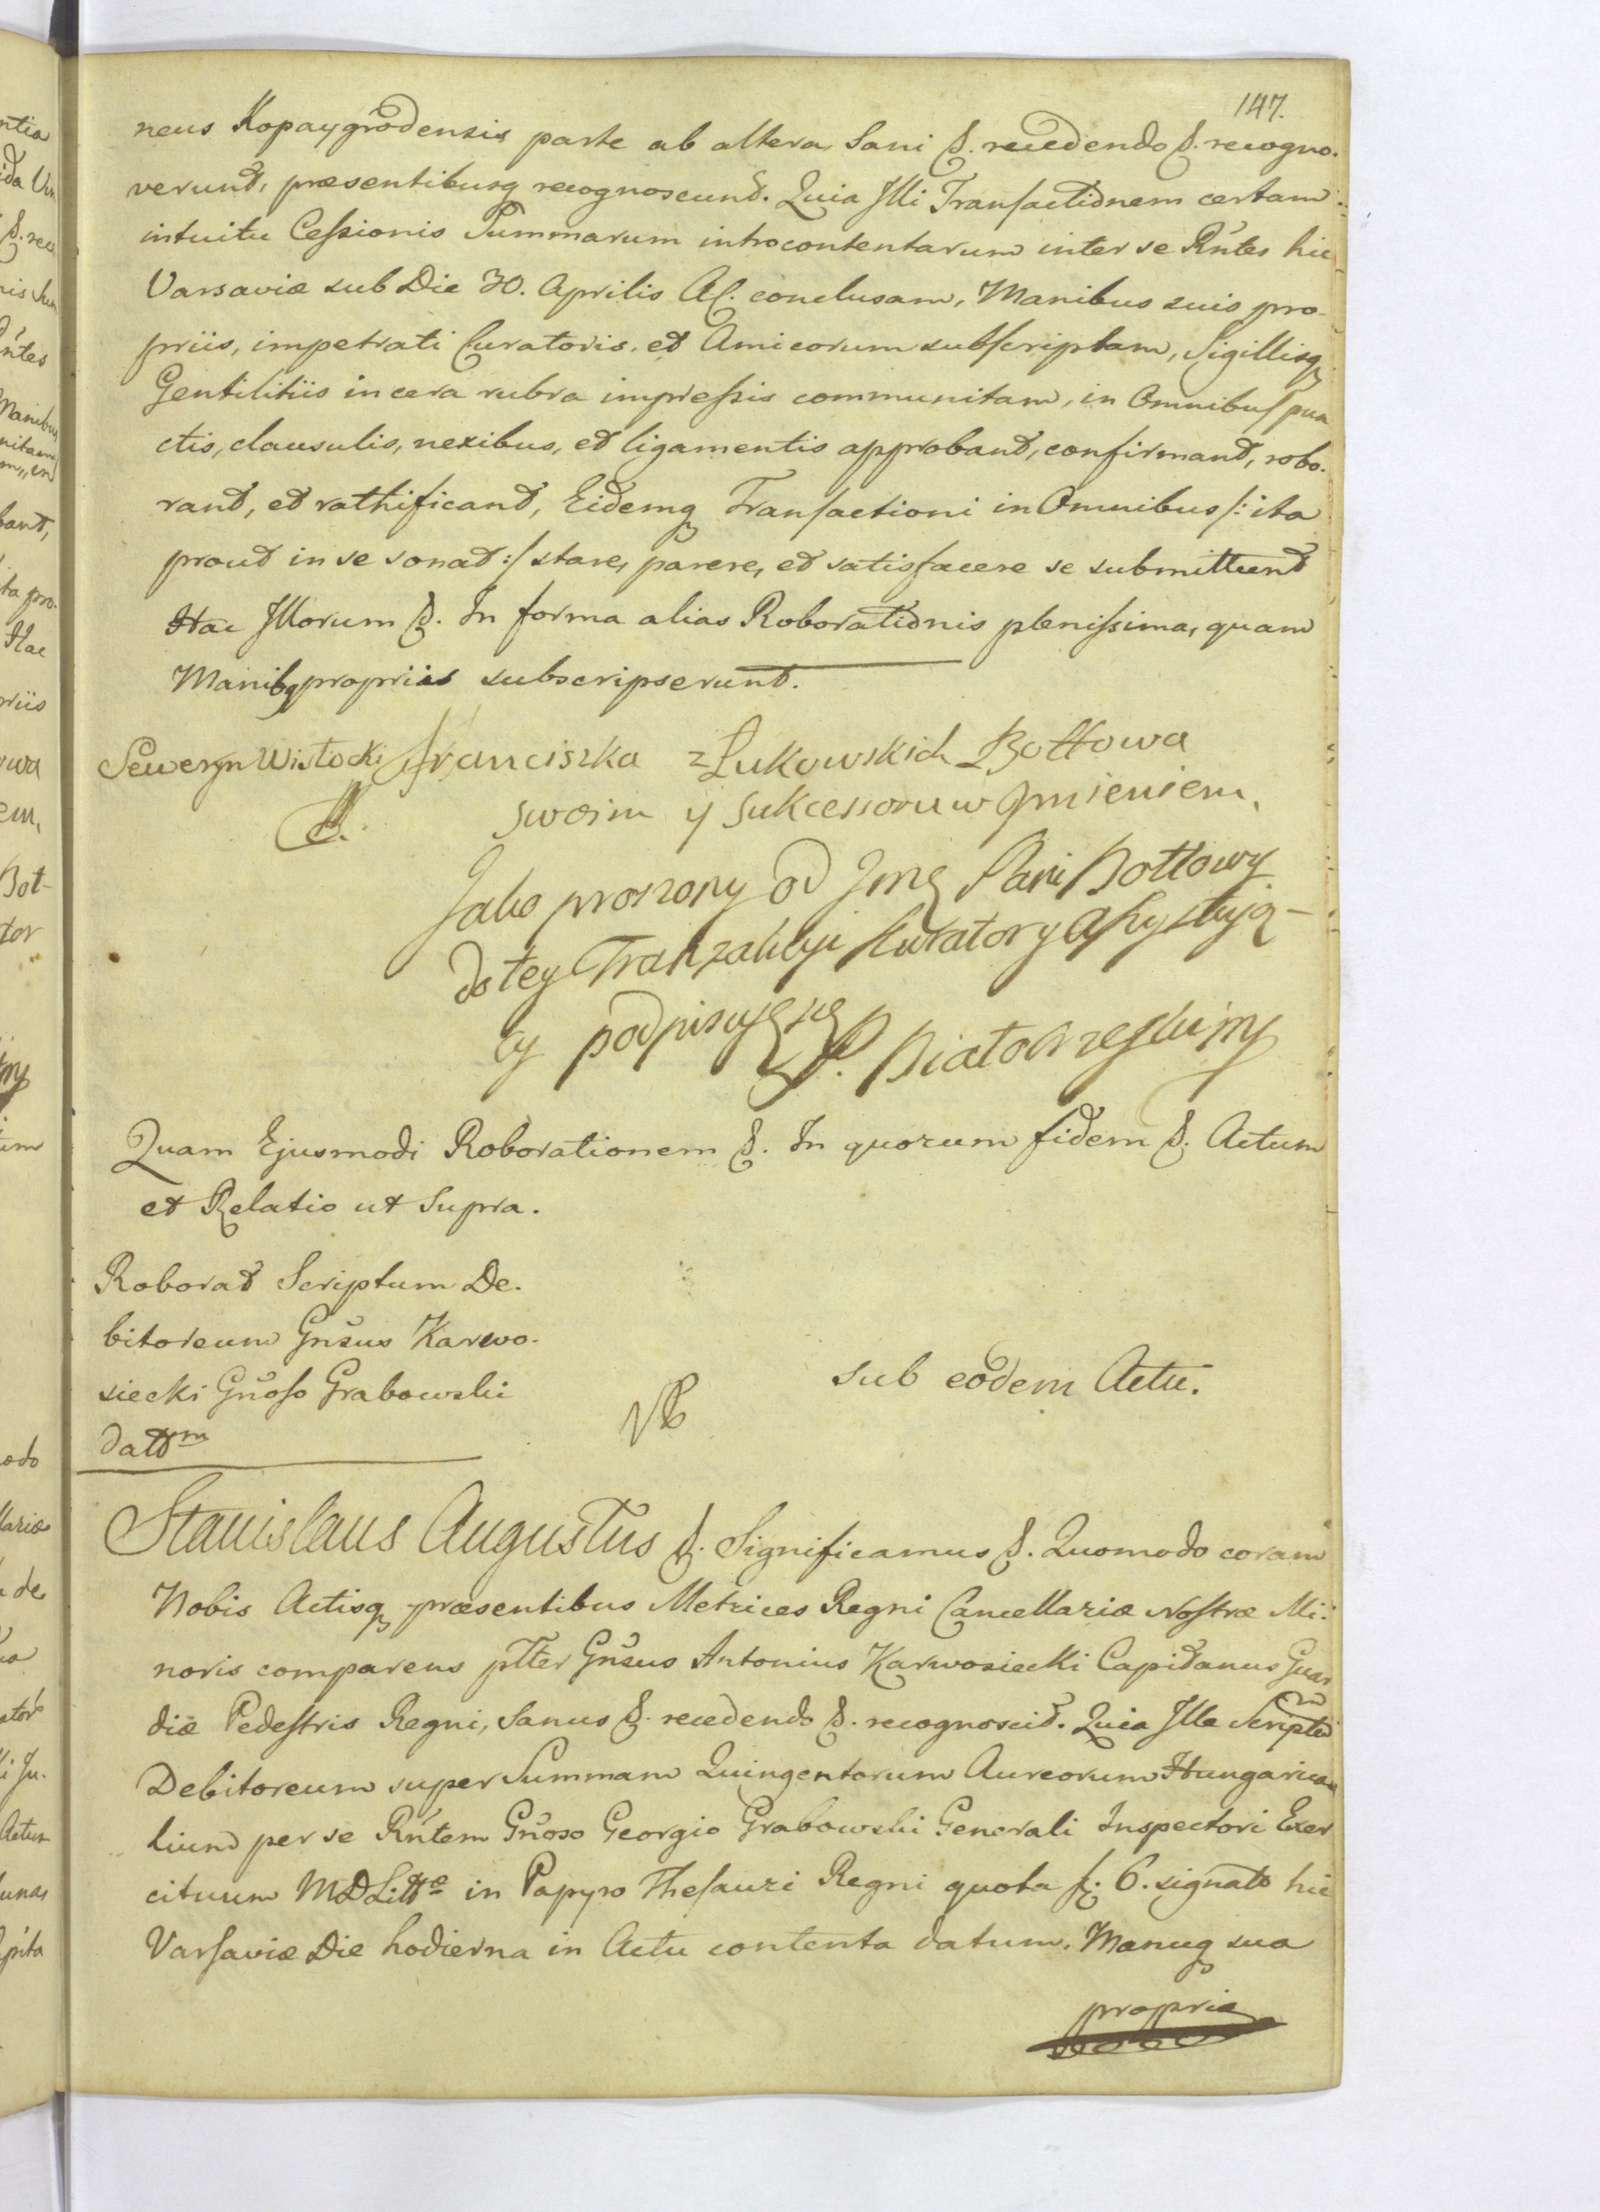 147.
neus Kopaygrodensis parte ab altera Sani &. recedendo &. recogno.
verunt, præsentibusq recognoscunt. Quia Illi Transactionem certam
intuitu Cessionis Summarum introcontentarum inter se Rñtes hic
Varsaviæ sub Die 30. Aprilis A C. conclusam, Manibus suis pro
priis, impetrati Curatoris, et Amicorum subscriptam, Sigillisq
Gentilitiis in cera rubra impressis communitam, in Omnibus pun
ctis, clausulis, nexibus, et ligamentis approbant, confirmant, robo.
rant, et rathificant, Eidemq Transactioni in Omnibus /: ita
prout in se sonat :/ stare, parere, et satisfacere se submittunt
Hac Illorum &. In forma alias Roborationis plenissima, quam
Manibq propriis subscripserunt.
Seweryn Wisłocki Franciszka z Łukowskich Bottowa
swoim y Sukcessoruw Jmieniem,
Jako proszony od Jmę Pani Bottowy
do tey Tranzakcyi Kuratory Assystują-
cy podpisuję się P. Białobrzeski mp
Quam Ejusmodi Roborationem &. In quorum fidem &. Actum
et Relatio ut Supra.
Roborat Scriptum De.
bitoreum Gñsus Karwo.
siecki Gñoso Grabowski
datt͞m
sub eodem Actu.
Stanislaus Augustus &. Significamus &. Quomodo coram
Nobis Actisq præsentibus Metrices Regni Cancellariæ Nostræ Mi:
noris comparens pltter Gñsus Antonius Karwosiecki Capitanus Guar
diæ Pedestris Regni, Sanus &. recedendo &. recognoscit. Quia Ille Scriptũ
Debitoreum super Summam Quingentorum Aureorum Hungarica
lium per se Rñtem Gñoso Georgio Grabowski Generali Inspectori Exer
cituum M D Littæ in Papyro Thesauri Regni quota f. 6. signato hic
Varsaviæ Die hodierna in Actu contenta datum. Manuq sua
propria